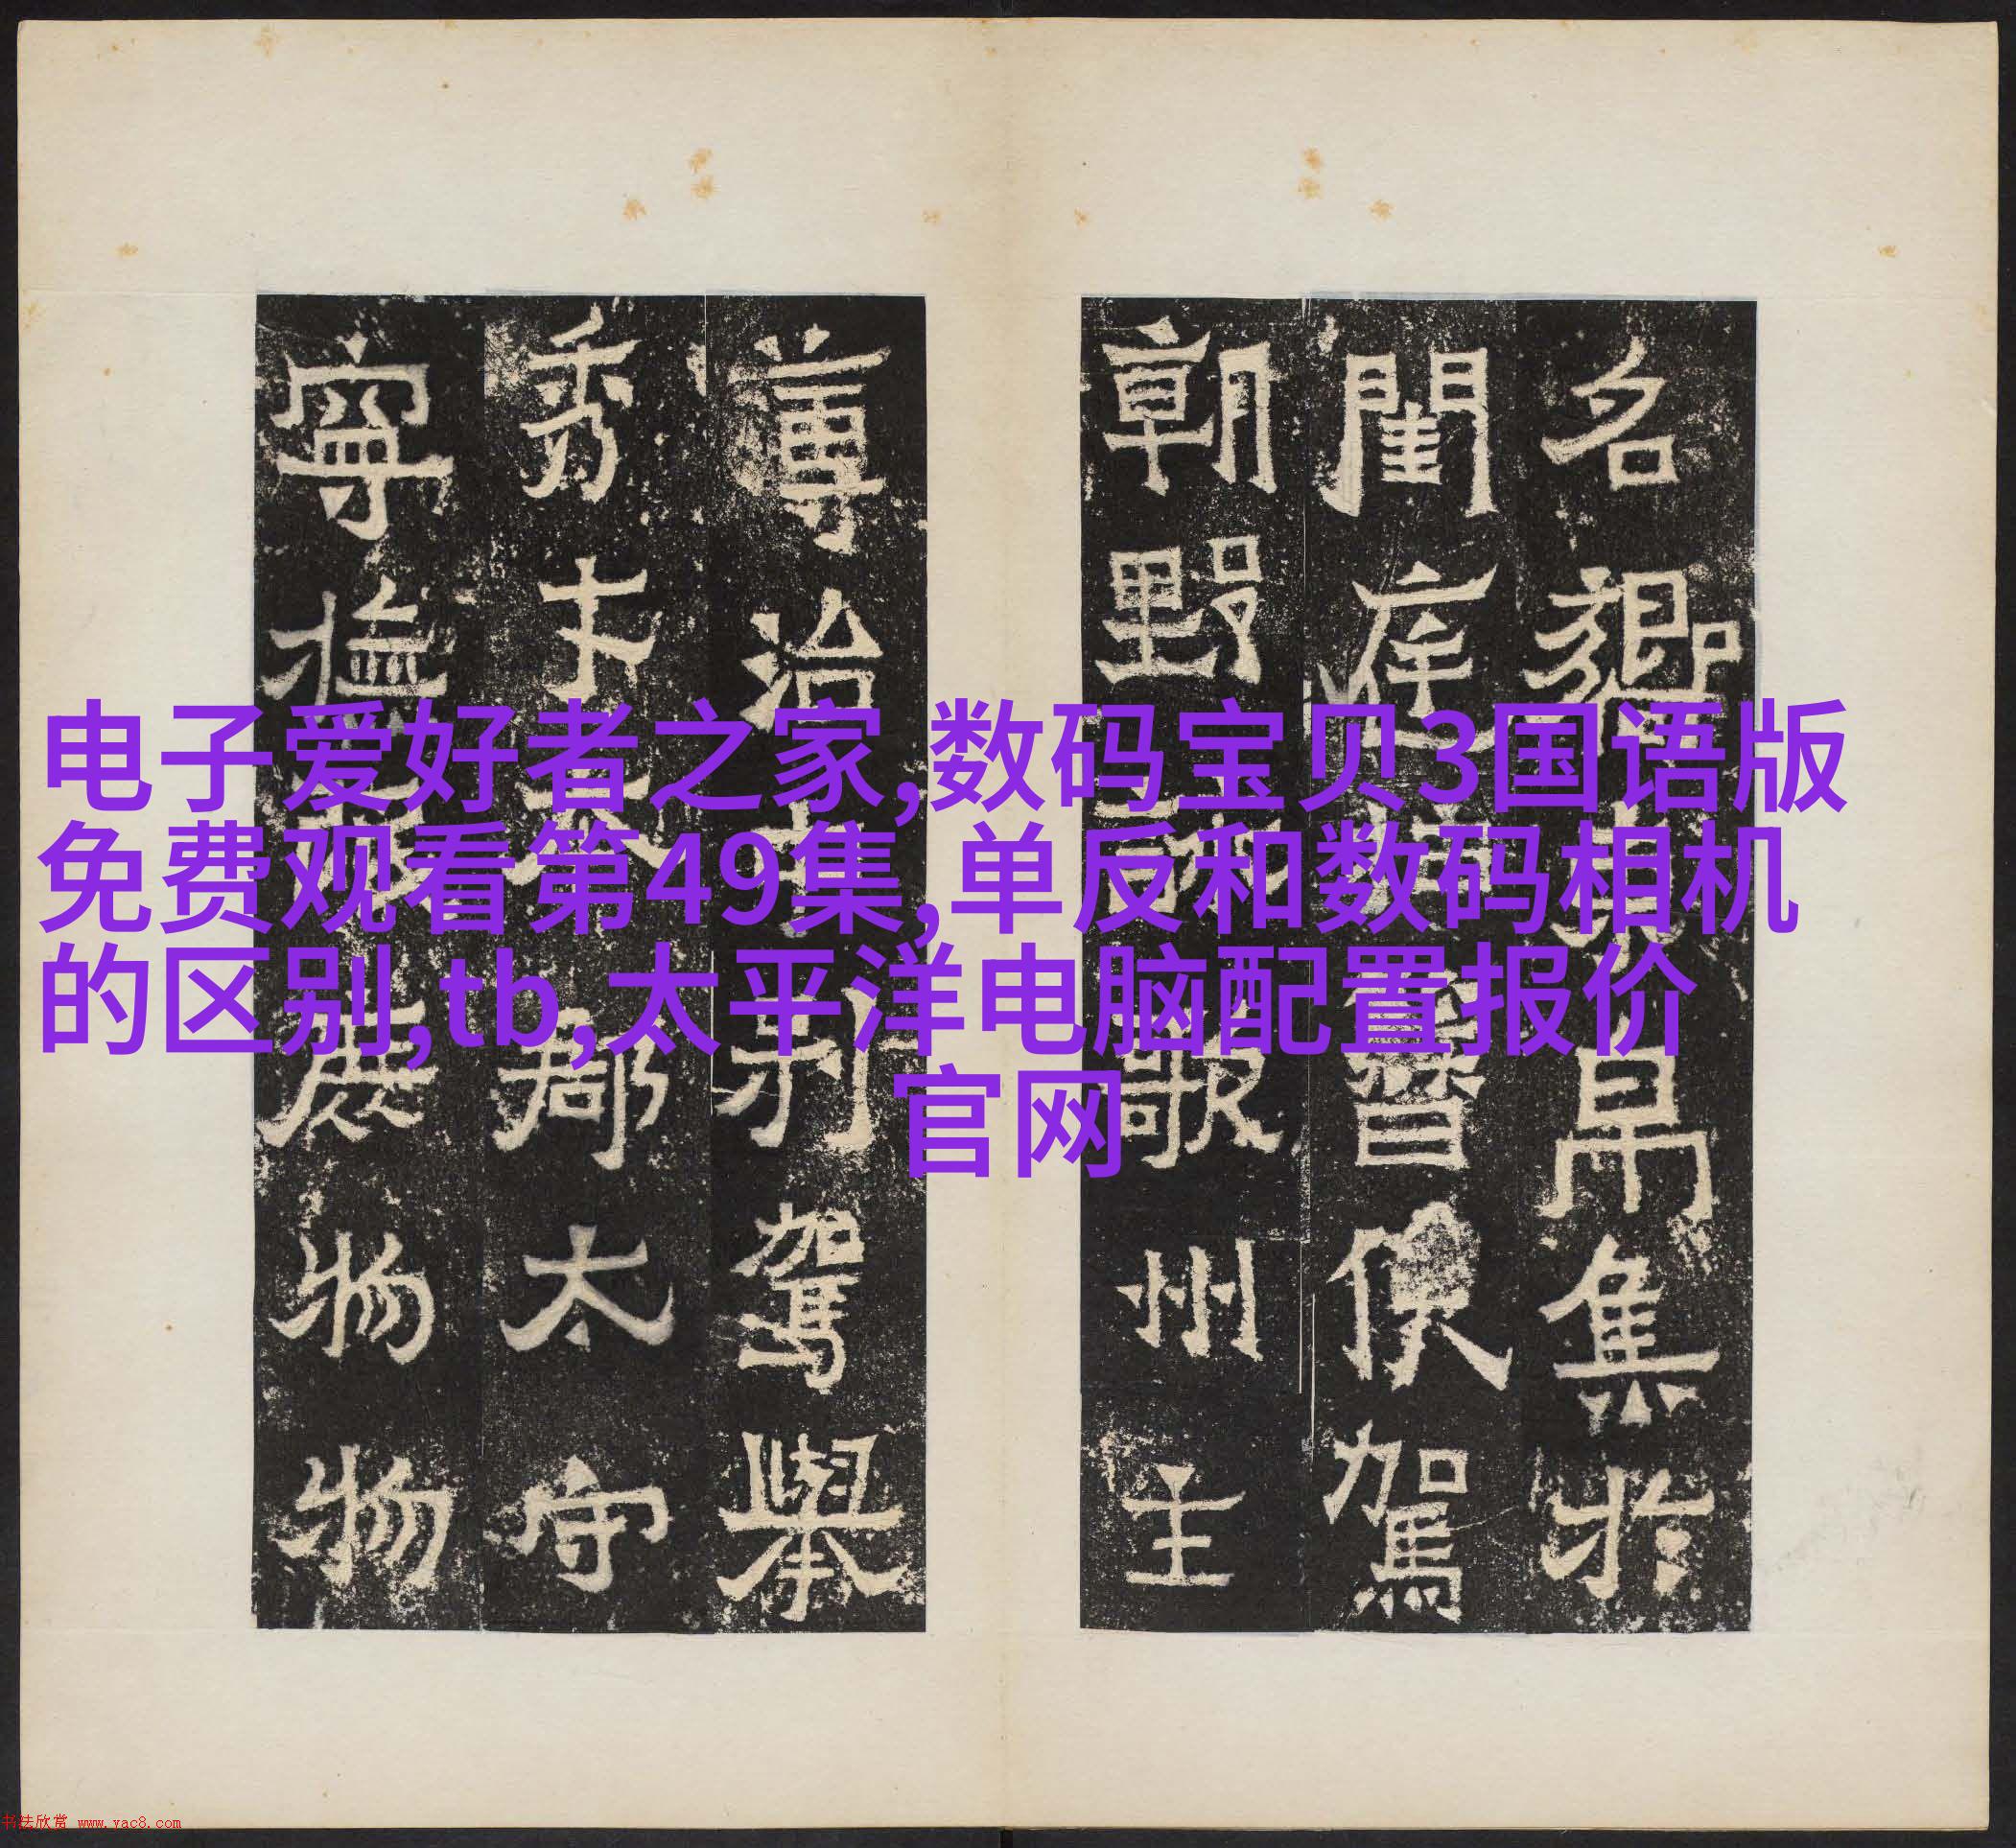 电子爱好者之家,数码宝贝3国语版
免费观看第49集,单反和数码相机
的区别,tb,太平洋电脑配置报价
官网
名鄉束帛集於
閨庭督駕
朝野詠歌州主
尊治中別駕舉
秀才本郡太守
寧撫黎庶物物
书法欣赏 www.yac8.com